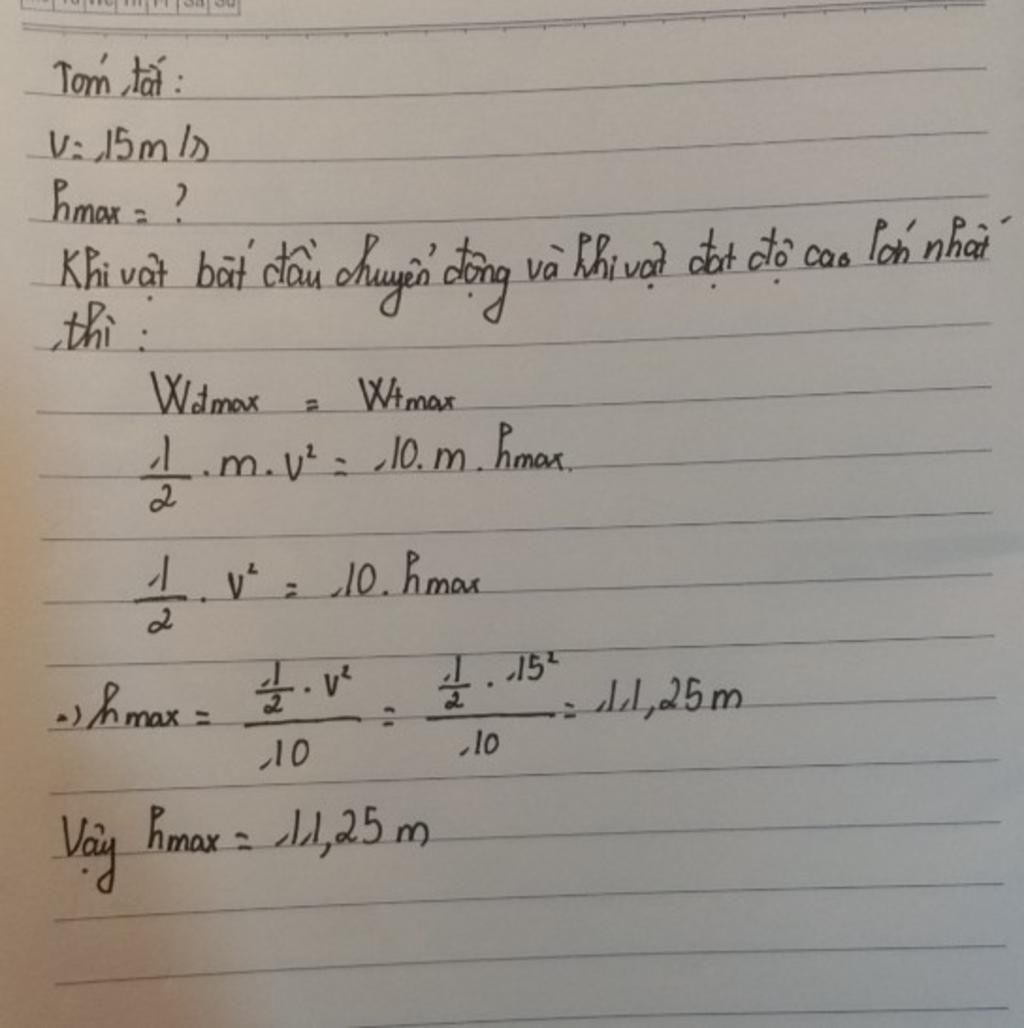 Tóm tắt:
v = 15m/s
hmax = ?
Khi vật bắt đầu chuyển động và khi vật đạt độ cao lớn nhất
thì :
Wđmax = Wtmax
1/2 . m . v² = 10. m . hmax.
1/2 . v² = 10. hmax
=> hmax = (1/2 . v²)/10 = (1/2 . 15²)/10 = 11,25 m
Vậy hmax = 11,25 m